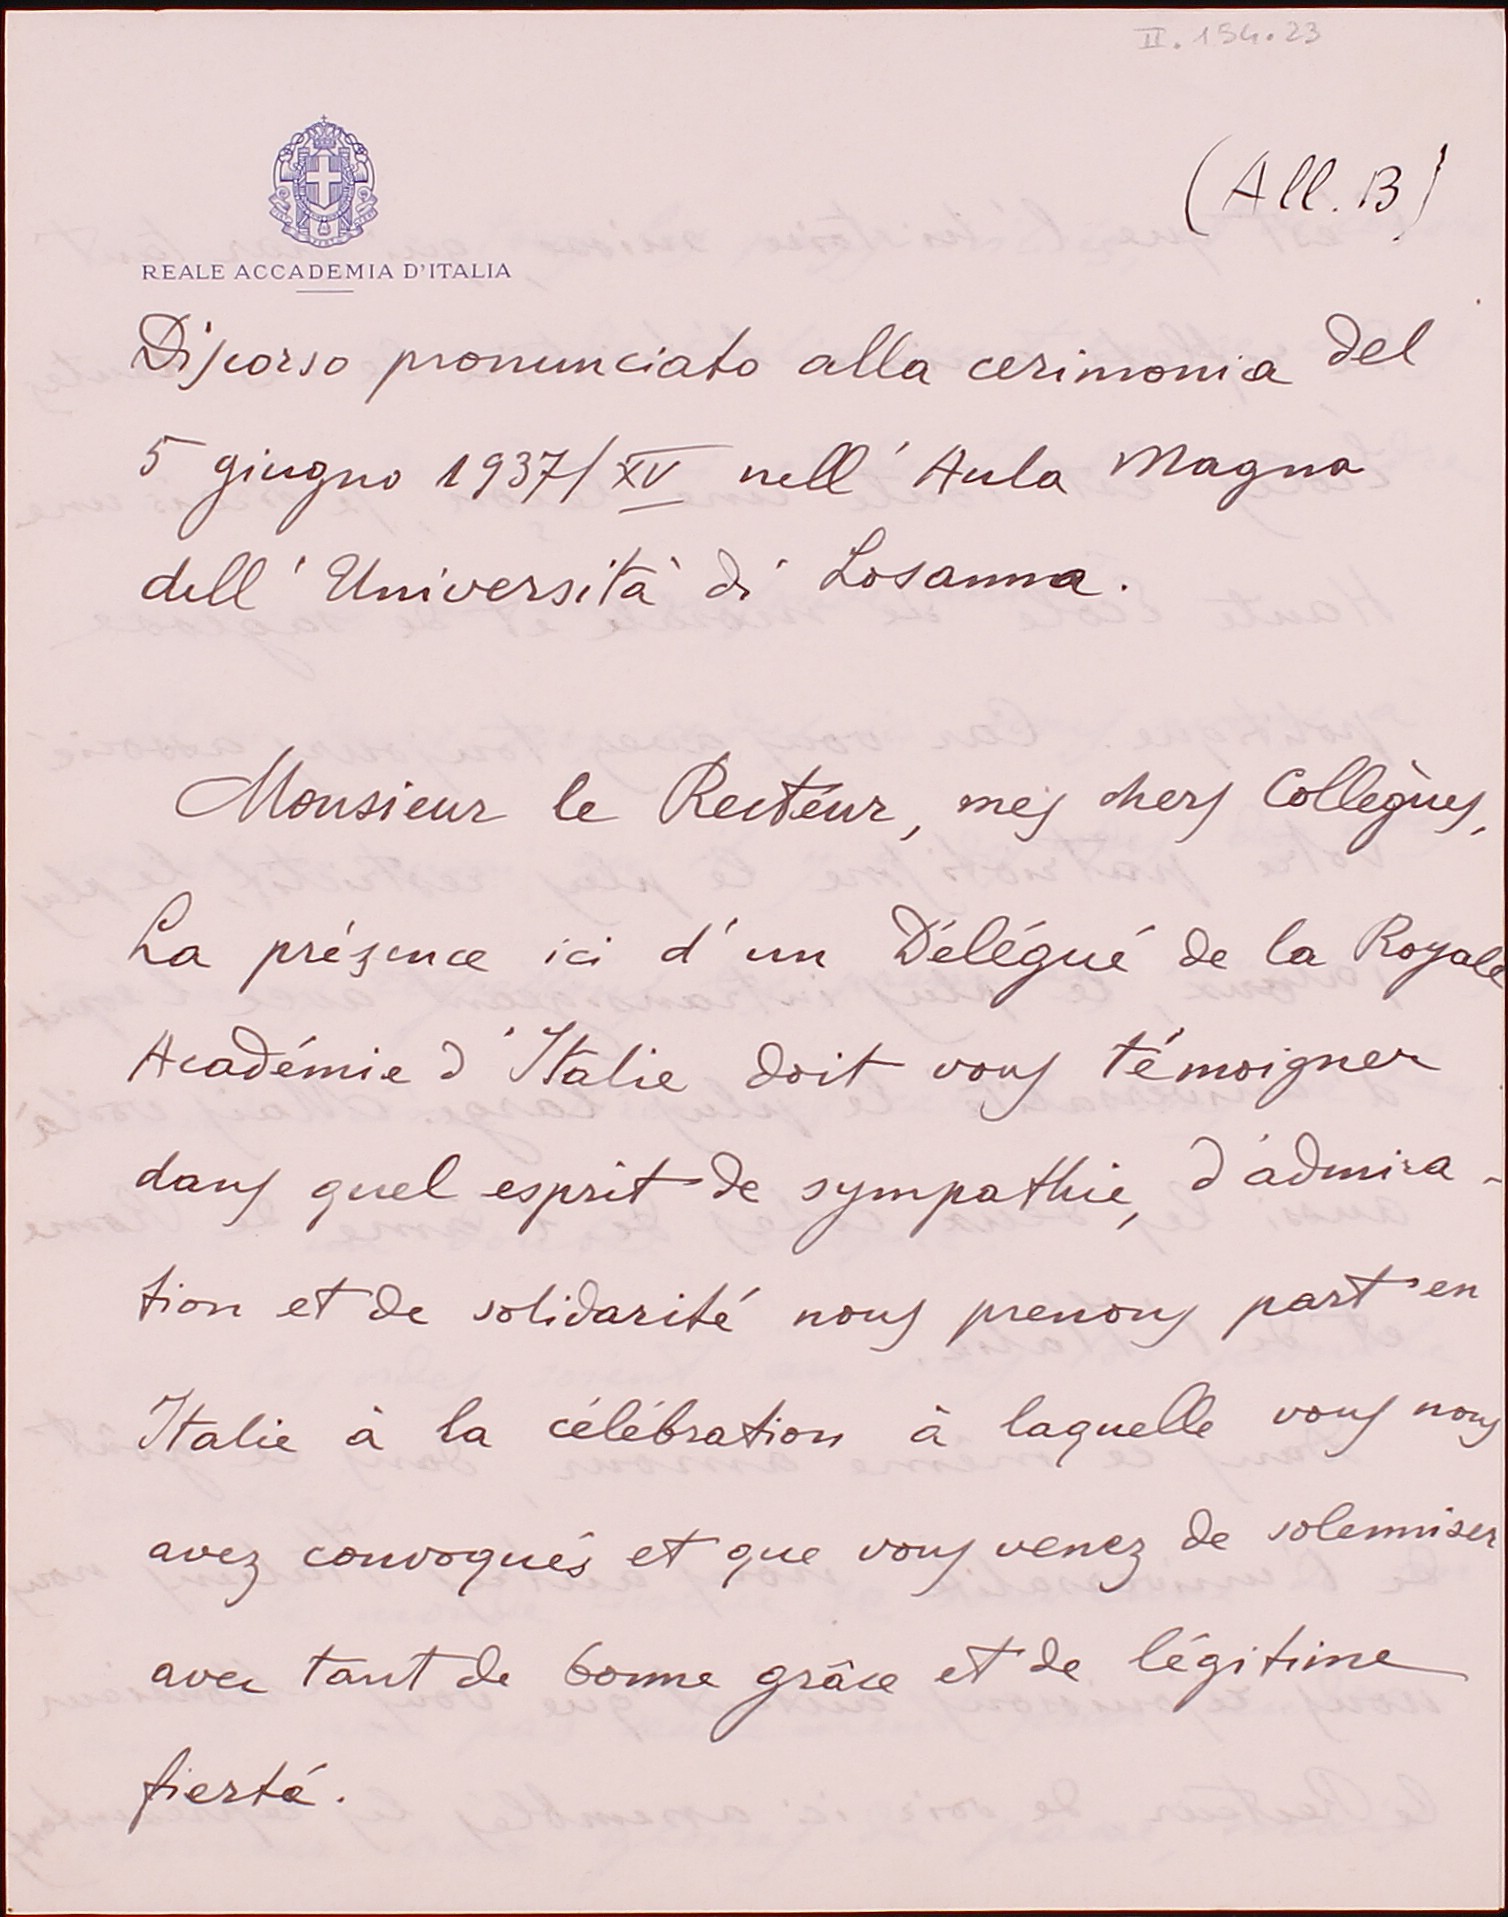 II. 154.23
(All. B)
REALE ACCADEMIA D'ITALIA
Discorso pronunciato alla cerimonia del
5 giugno 1937/XV nell'Aula Magna
dell'Università di Losanna.
Monsieur le Recteur, mes chers Collègues,
La présence ici d'un Délégué de la Royale
Académie d'Italie doit vous témoigner
dans quel esprit de sympathie, d'admira-
tion et de solidarité nous prenons part en
Italie à la célébration à laquelle vous nous
avez convoqués et que vous venez de solenniser
avec tant de bonne grâce et de légitime
fierté.